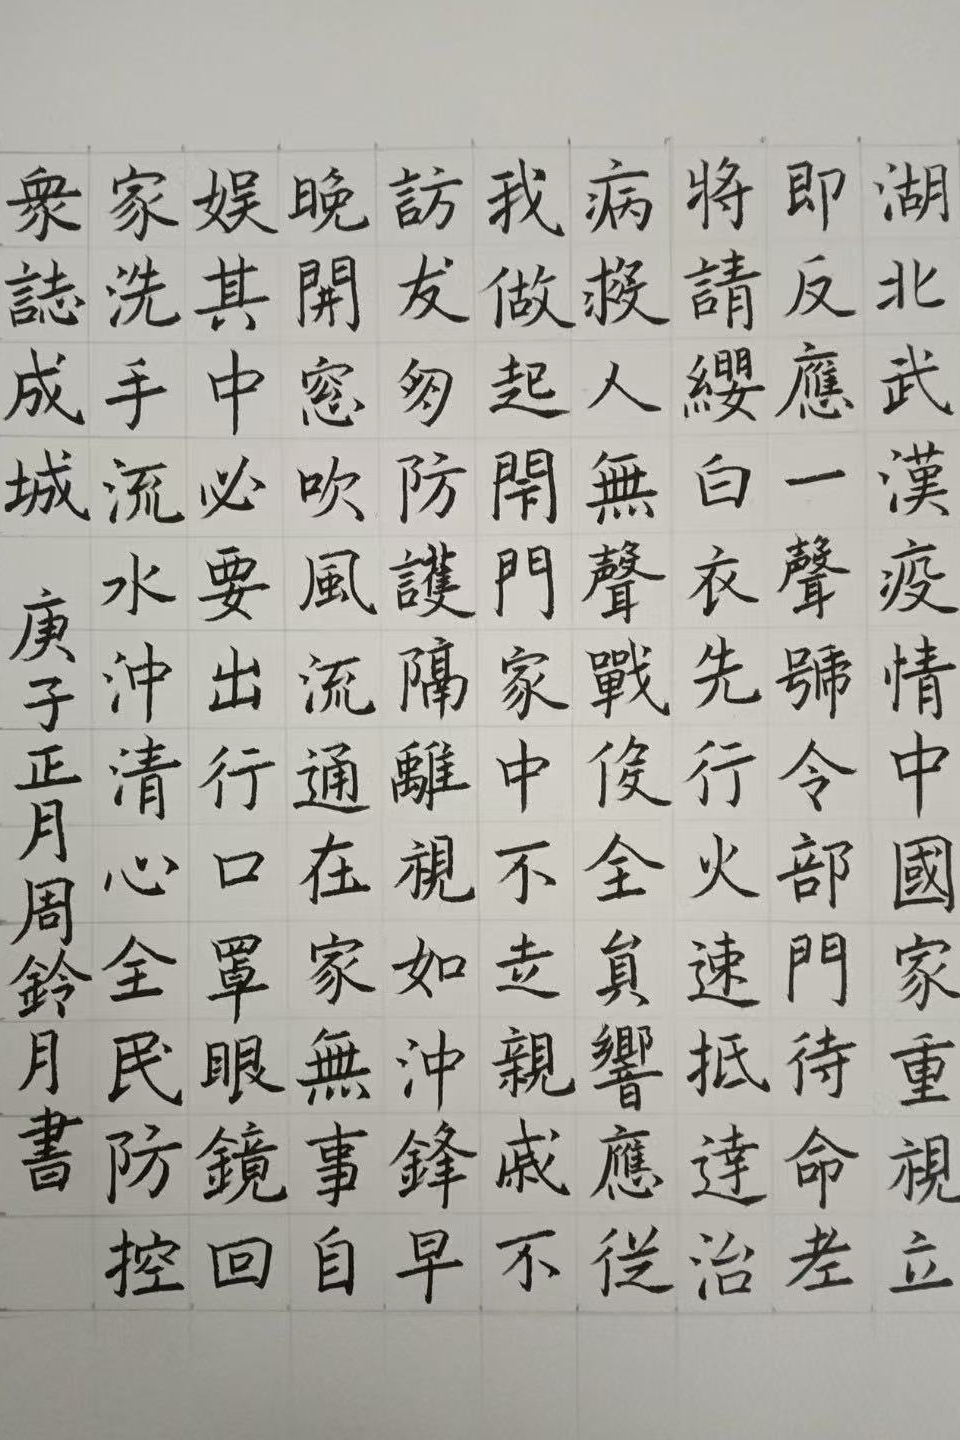 湖北武漢疫情中國家重視立
即反應一聲號令部門待命老
將請纓白衣先行火速抵達治
病救人無聲戰役全員響應從
我做起閉門家中不走親戚不
訪友勿防護隔離視如沖鋒早
晚開窓吹風流通在家無事自
娱其中必要出行口罩眼鏡回
家洗手流水沖清心全民防控
衆誌成城
庚子正月周鈴月書